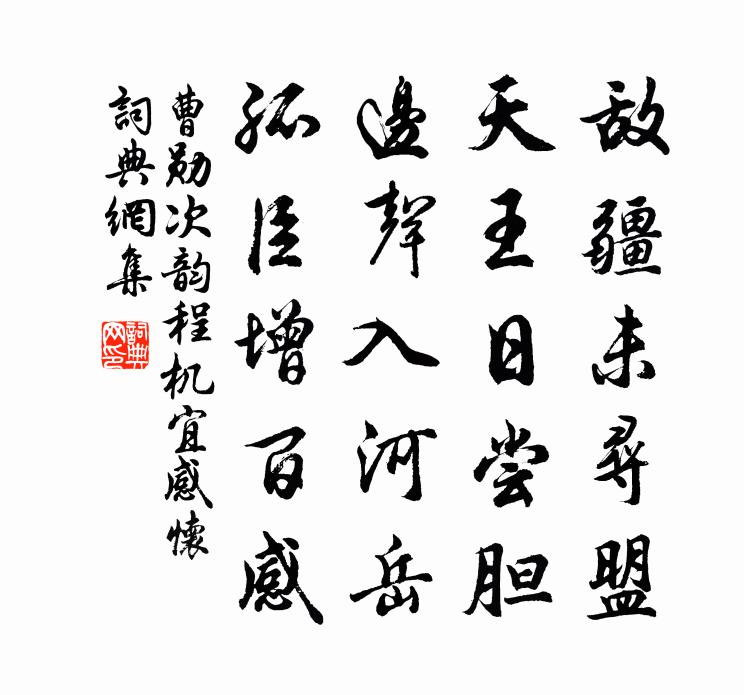 敌疆未尋盟
天王日尝胆
邊聲入河岳
孤臣增百感
曹勋次韵程机宜感懷
詞典網集
詞典网印